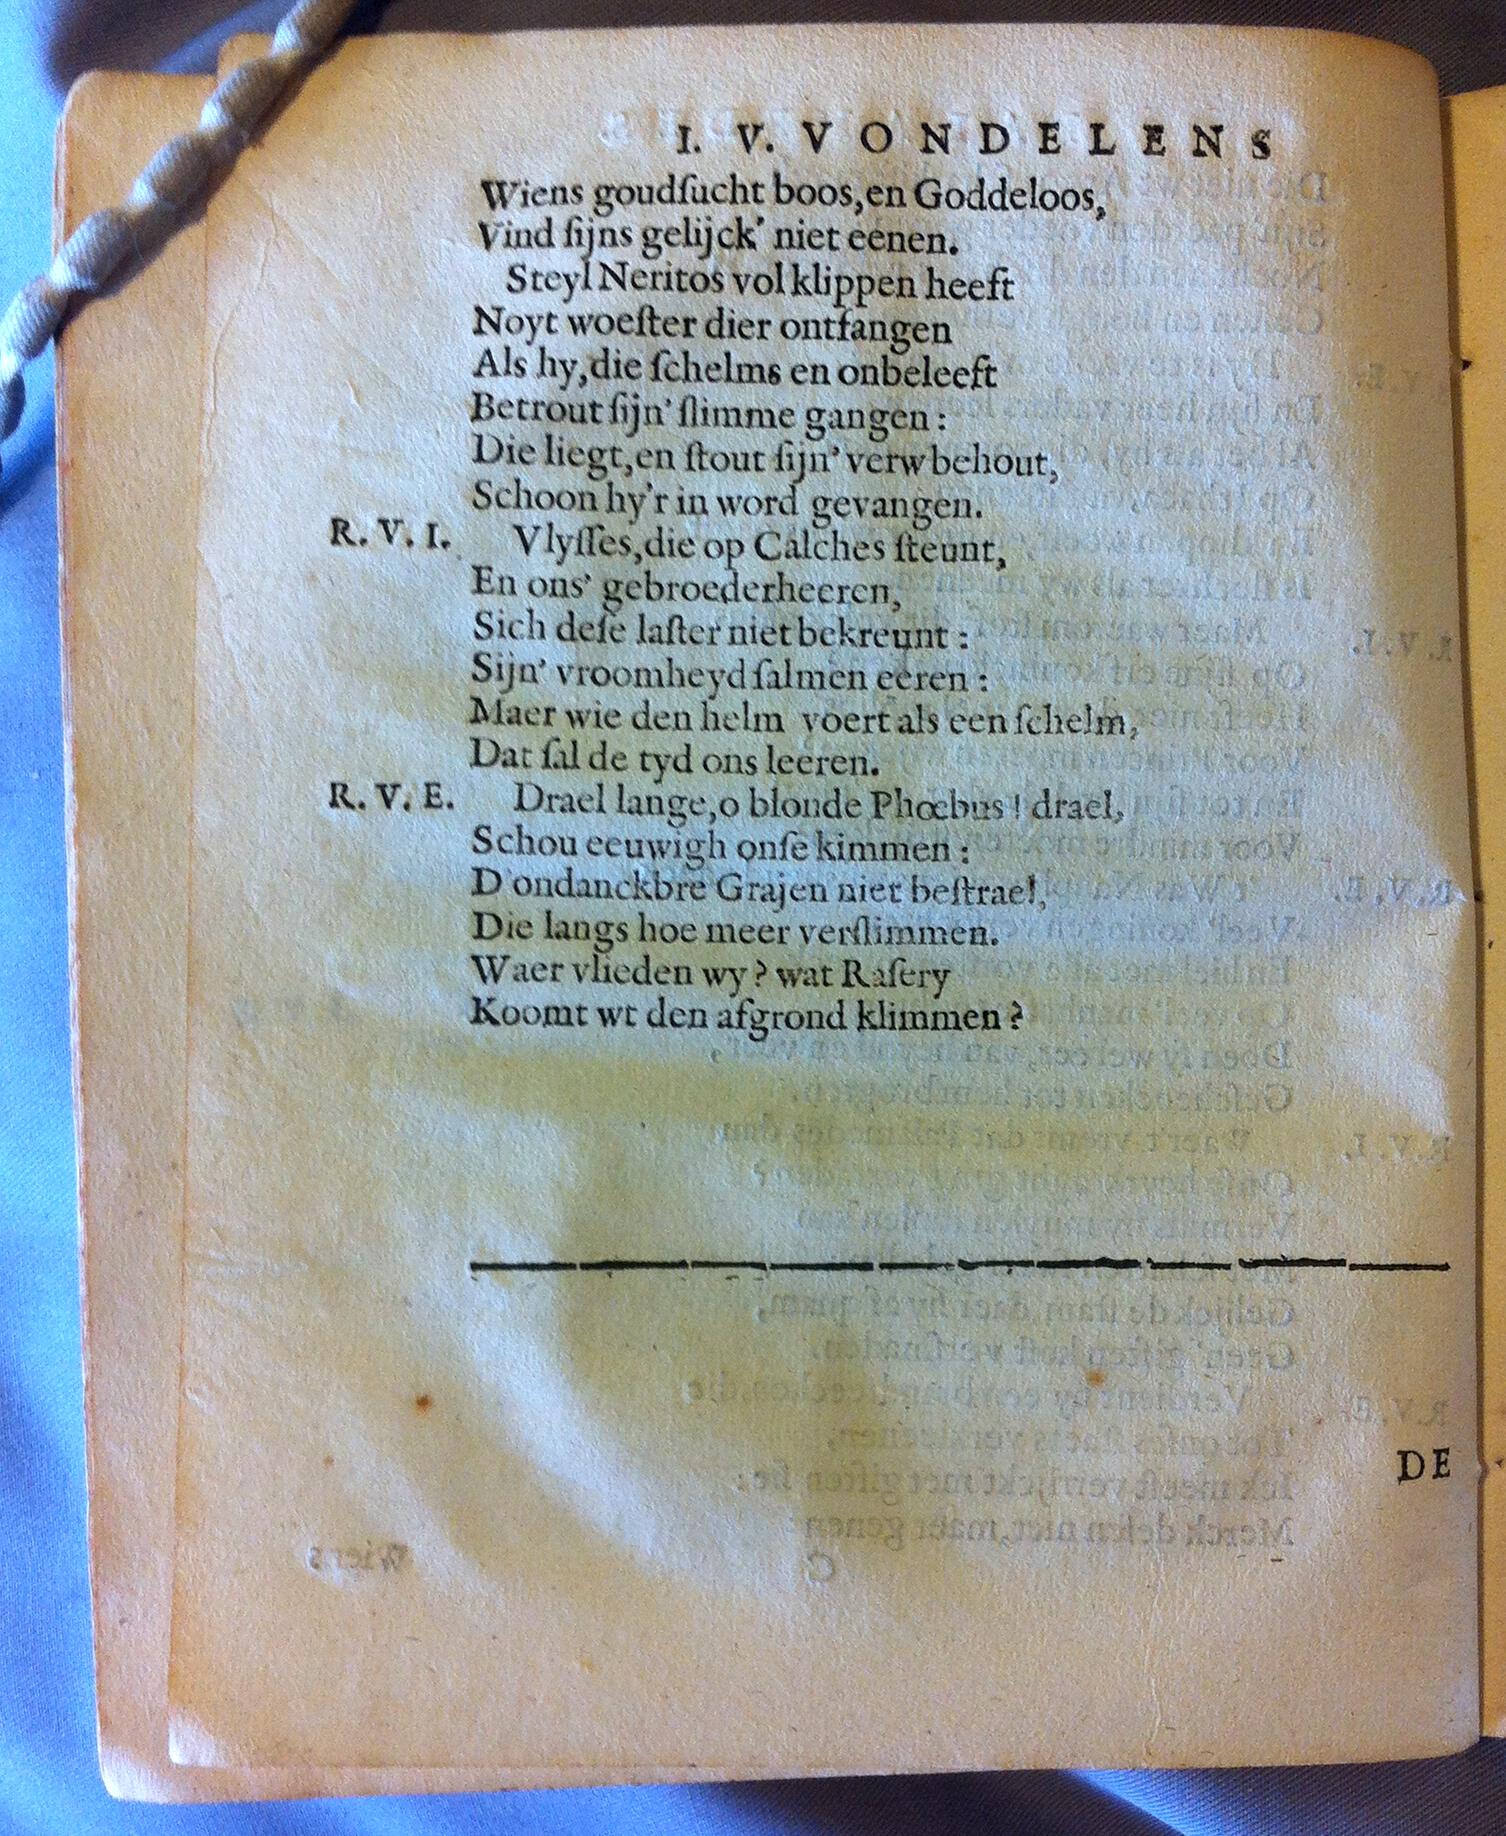 I. V. VONDELENS
Wiens goudſucht boos, en Goddeloos,
Vind ſijns gelijck' niet eenen.
Steyl Neritos vol klippen heeft
Noyt woeſter dier ontfangen
Als hy, die ſchelms en onbeleeft
Betrout ſijn' ſlimme gangen:
Die liegt, en ſtout ſijn' verw behout,
Schoon hy'r in word gevangen.
R. V. I. Vlyſſes, die op Calches ſteunt,
En ons' gebroederheeren,
Sich deſe laſter niet bekreunt:
Sijn' vroomheyd ſalmen eeren:
Maer wie den helm voert als een ſchelm,
Dat ſal de tyd ons leeren.
R. V. E. Drael lange, o blonde Phœbus! drael,
Schou eeuwigh onſe kimmen:
D'ondanckbre Grajen niet beſtrael,
Die langs hoe meer verſlimmen.
Waer vlieden wy? wat Raſery
Koomt wt den afgrond klimmen?
DE